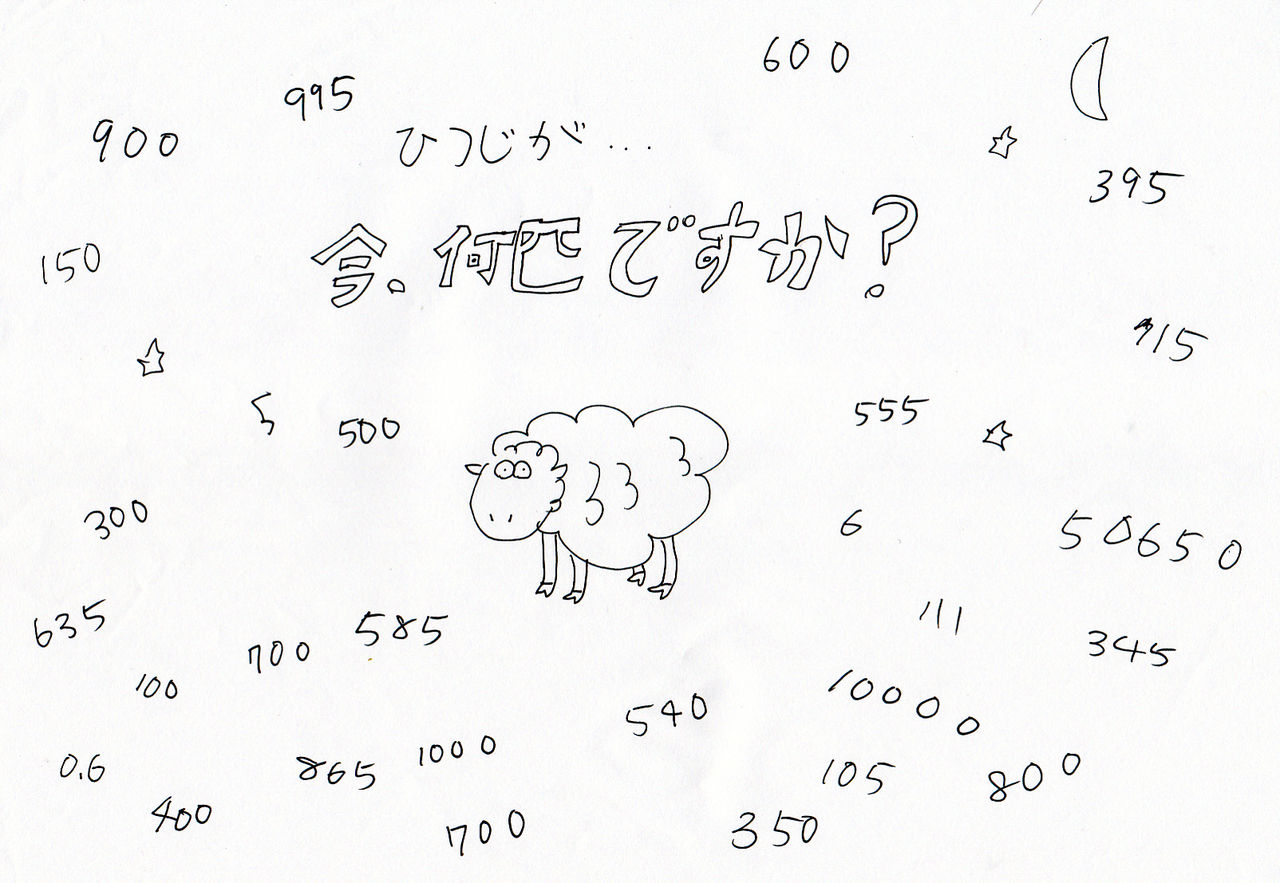 600
995
900
ひつじが...
395
今。何匹ですか?
150
915
5 500
555
300
6
50650
635
700
585
111
345
100
540
10000
0.6
865
1000
105
800
400
700
350